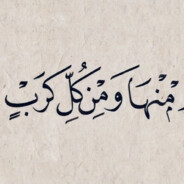 مِنْهَا وَمِنْ كُلِّ كَرْبٍ